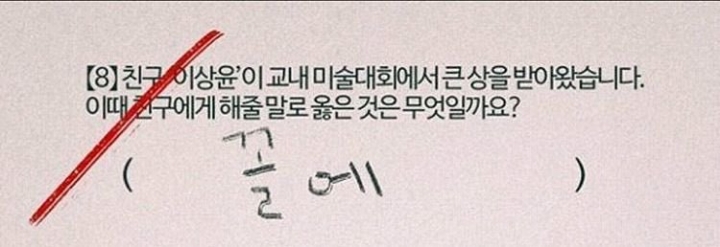 【8】친구 '이상윤'이 교내 미술대회에서 큰 상을 받아왔습니다.
이때 친구에게 해줄 말로 옳은 것은 무엇일까요?
( 꼴에 )